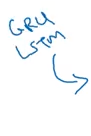 GRU
LSTM